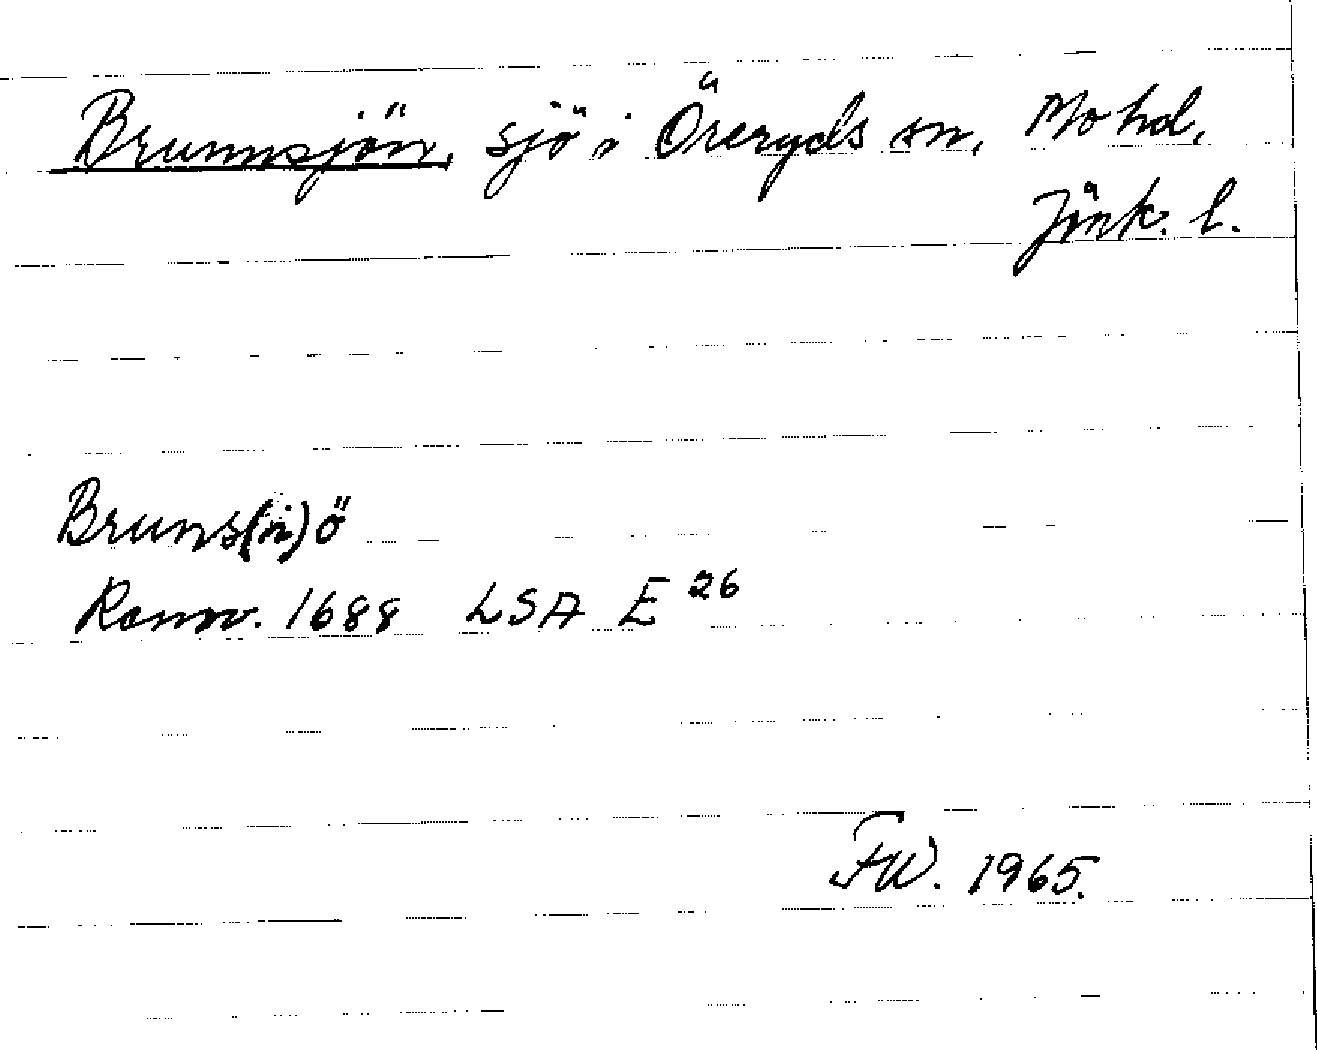 Brunnsjön, sjö i Öreryds sn, Mo hd,
Jönk. l.
Bruns(iö)ö
Rannv. 1688 LSA E 26
FW. 1965.